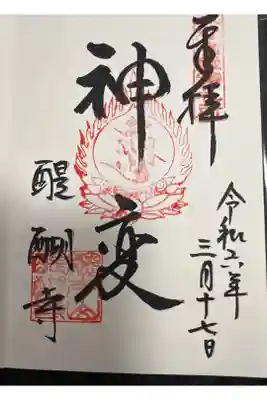 奉拝
令和二年
三月十七日
神変
醍醐寺